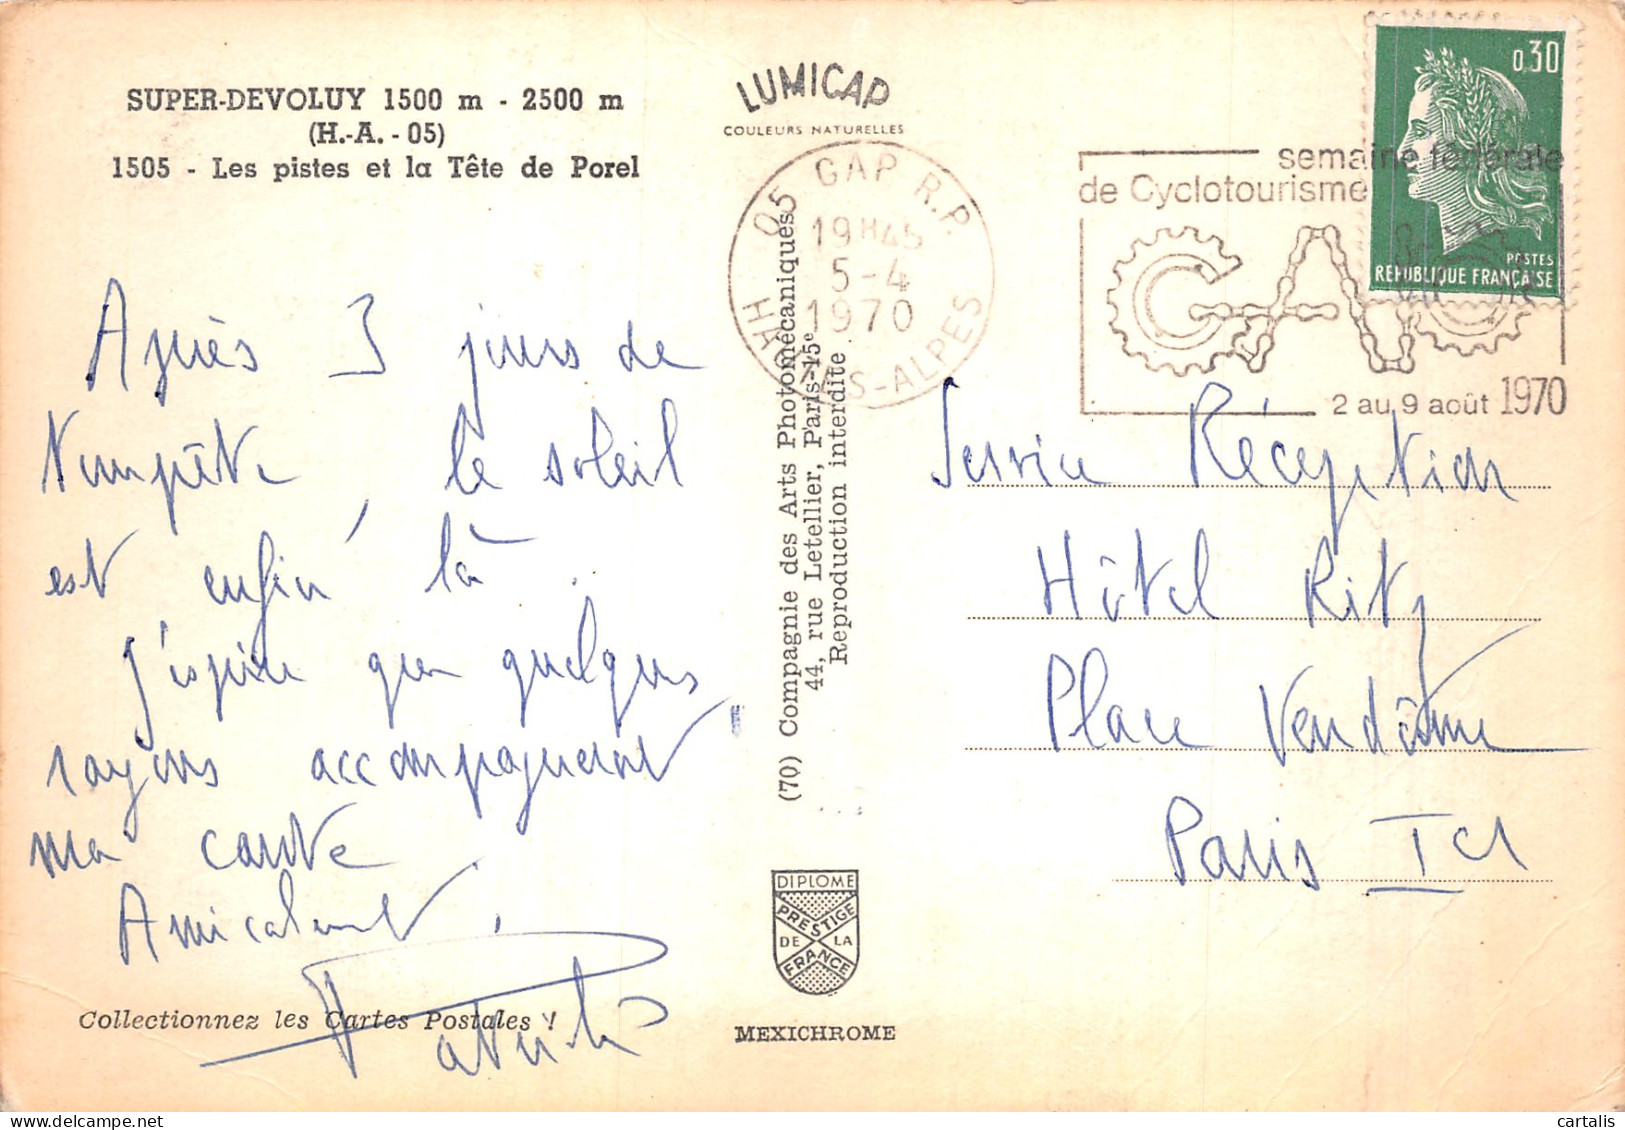 SUPER-DEVOLUY 1500 m - 2500 m
(H.-A. - 05)
1505 - Les pistes et la Tête de Porel
Après 3 jours de
tempête, le soleil
est enfin là.
J'espère que quelques
rayons accompagneront
ma carte
Amicalement,
Patrick
Collectionnez les Cartes Postales !
LUMICAP
COULEURS NATURELLES
05 GAP R.P.
19H45
5-4
1970
HAUTES-ALPES
(70) Compagnie des Arts Photomécaniques
44, rue Letellier, Paris-15e
Reproduction interdite
DIPLOME
PRESTIGE
DE LA
FRANCE
MEXICHROME
semaine fédérale
de Cyclotourisme
GAP
2 au 9 août 1970
0,30
POSTES
REPUBLIQUE FRANÇAISE
Service Réception
Hôtel Ritz
Place Vendôme
Paris Ier
cartalis